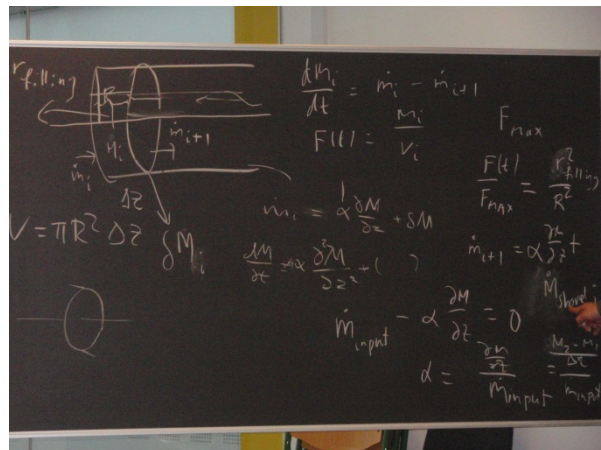 r filling
ṁᵢ
Mᵢ
ṁᵢ₊₁
Δz
V = πR² Δz
δṀᵢ
dMᵢ/dt = ṁᵢ - ṁᵢ₊₁
F(t) = Mᵢ/Vᵢ
F max
F(t)/F MAX = r² filling/R²
ṁᵢ = α ∂M/∂z + δM
ṁᵢ₊₁ = α ∂M/∂z +
∂M/∂t = α ∂²M/∂z² + ( )
ṁ input - α ∂M/∂z = 0
α = ∂M/∂z / ṁ input = M₂ - M₁/Δz / ṁ input